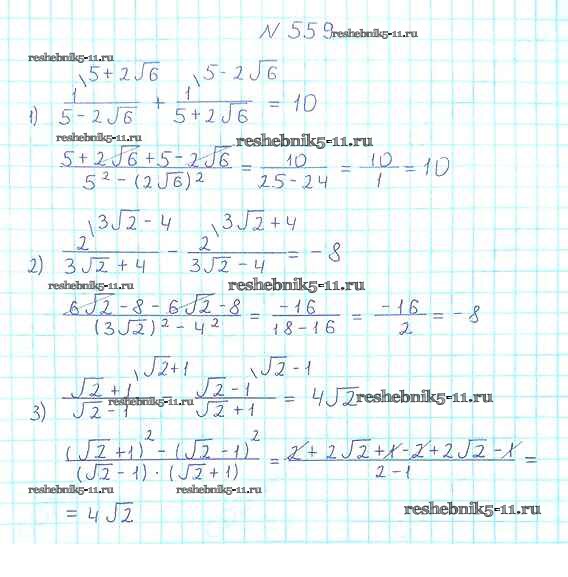 N 559 reshebnik5-11.ru
reshebnik5-11.ru
\5+2√6 \5-2√6
1) 1/(5-2√6) + 1/(5+2√6) = 10
reshebnik5-11.ru reshebnik5-11.ru
(5+2√6+5-2√6)/(5²-(2√6)²) = 10/(25-24) = 10/1 = 10
\3√2-4 \3√2+4
2) 2/(3√2+4) - 2/(3√2-4) = -8
reshebnik5-11.ru reshebnik5-11.ru
(6√2-8-6√2-8)/((3√2)²-4²) = -16/(18-16) = -16/2 = -8
\√2+1 \√2-1
3) (√2+1)/(√2-1) - (√2-1)/(√2+1) = 4√2
reshebnik5-11.ru reshebnik5-11.ru
((√2+1)²-(√2-1)²)/((√2-1)·(√2+1)) = (2+2√2+1-2+2√2-1)/(2-1) =
reshebnik5-11.ru reshebnik5-11.ru
= 4√2
reshebnik5-11.ru